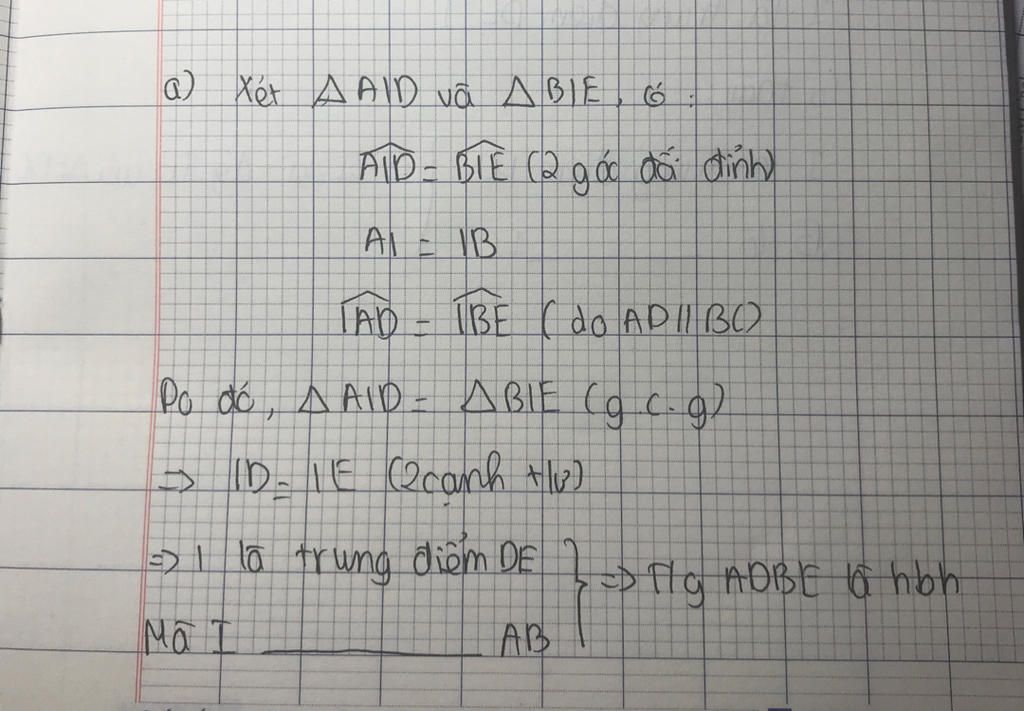 a) Xét ΔAID và ΔBIE, có :
AID = BIE (2 góc đối đỉnh)
AI = IB
IAD = IBE (do AD // BC)
Do đó, ΔAID = ΔBIE (g.c.g)
⇒ ID = IE (2 cạnh t/ư)
⇒ I là trung điểm DE
⇒ T/g ADBE là hbh
Mà I ________ AB